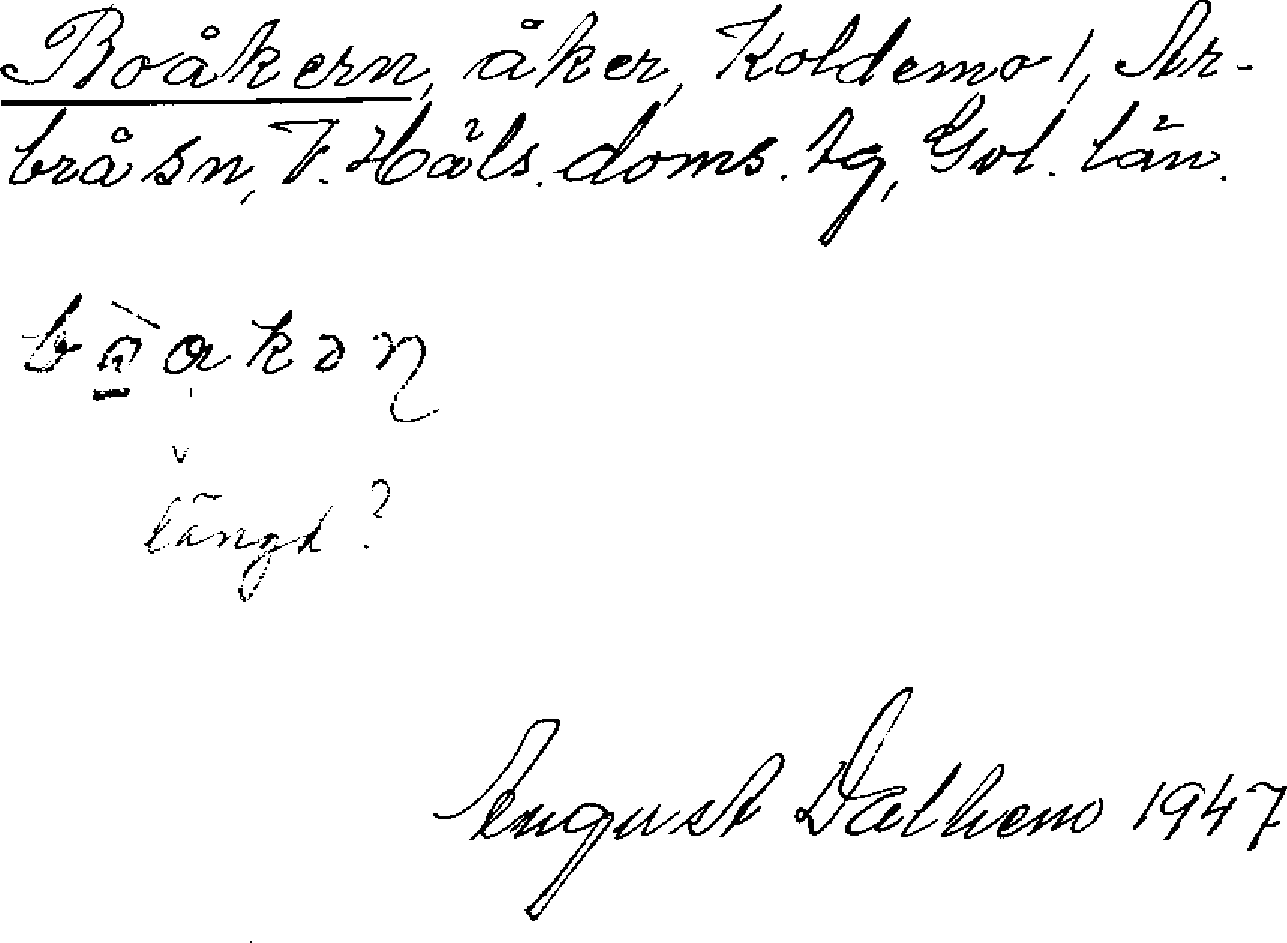 Boåkern, åker, Koldemo 1, Ar-
brå sn, V. Häls. doms. tg, Gvl. län.
längd?
August Dalhem 1947